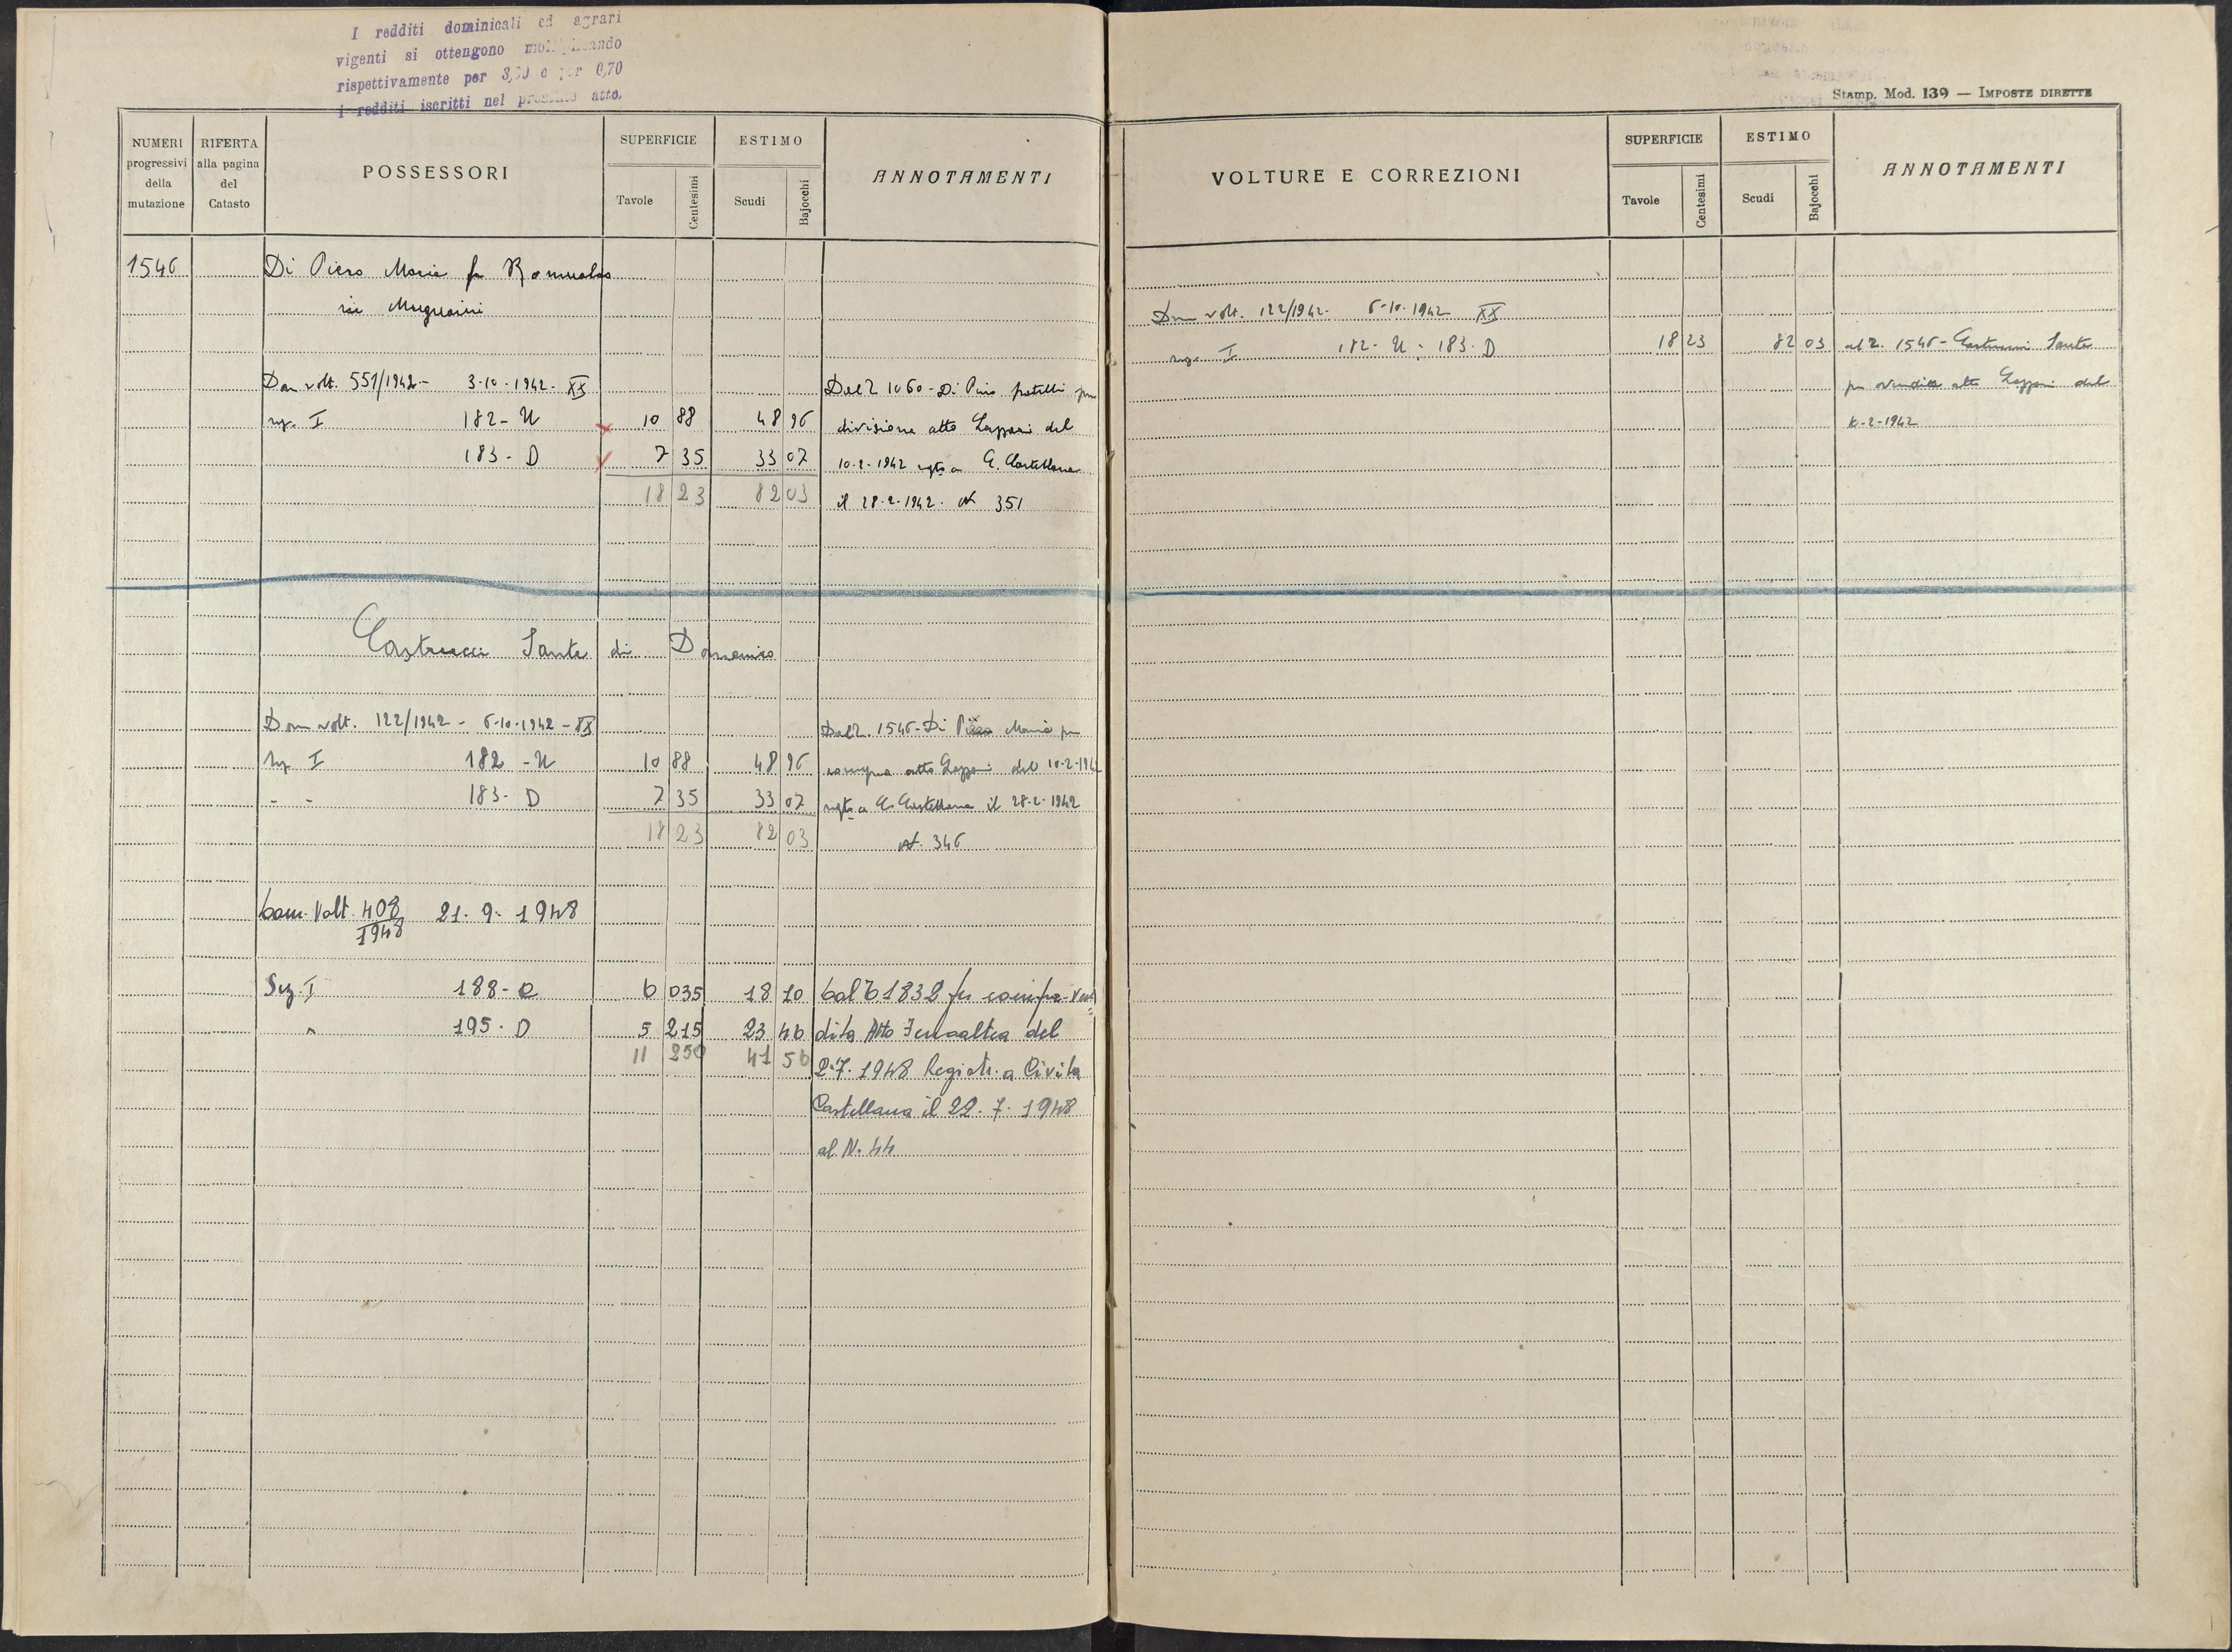 I redditi dominicali ed agrari
vigenti si ottengono
rispettivamente per 0,70
i redditi iscritti nel presente atto.
NUMERI progressivi della mutazione
RIFERTA alla pagina del Catasto
POSSESSORI
SUPERFICIE
Tavole
Centesimi
ESTIMO
Scudi
Bajocchi
ANNOTAMENTI
1546 Di Piero Maria fu Romualdo
Dom volt. 551/1942 - 3-10-1942 - XX Dal 2 1060 - Di Piero fratelli per
sez. I 182 - U 10 88 48 96 divisione atto Lazzari del
183 - D 7 35 33 07 10-2-1942 regto a C. Castellana
18 23 82 03 il 28-2-1942. N 351
Castrucci Sante di Domenico
Dom volt. 122/1942 - 6-10-1942 - XX Dal 2. 1546 - Di Piero Maria per
Sez I 182 - U 10 88 48 96 atto Lazzari del 10-2-1942
- - 183 - D 7 35 33 07 regto a C. Castellana il 28-2-1942
18 23 82 03 N. 346
Dom. Volt. 408/1948 21. 9. 1948
Sez. I 188 - 6 035 18 10 Dal 1832 per compra-ven=
" 195 - D 5 215 23 46 dita Atto del
11 250 41 56 2.7.1948 Registr. a Civita
Castellana il 22. 7. 1948
al N. 44
Stamp. Mod. 139 — IMPOSTE DIRETTE
VOLTURE E CORREZIONI
SUPERFICIE
Tavole
Centesimi
ESTIMO
Scudi
Bajocchi
ANNOTAMENTI
Dom volt. 122/1942 - 6-10-1942 XX
sez. I 182 - U - 183 - D 18 23 82 03 al 2. 1546 - Castrucci Sante
per vendita atto Lazzari del
10-2-1942